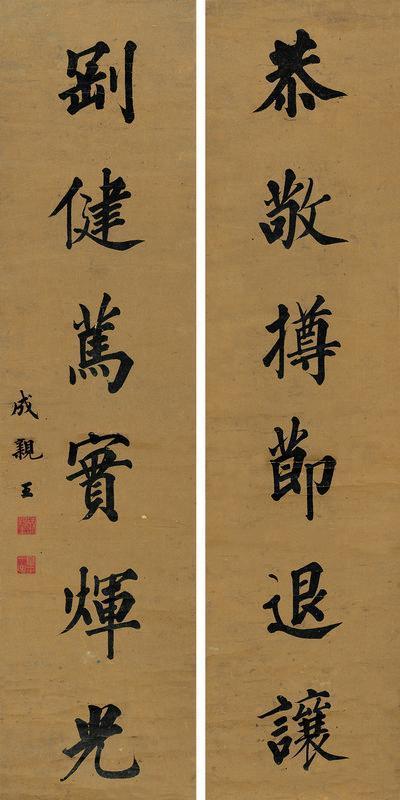 恭敬撙節退讓
剛健篤實煇光
成親王